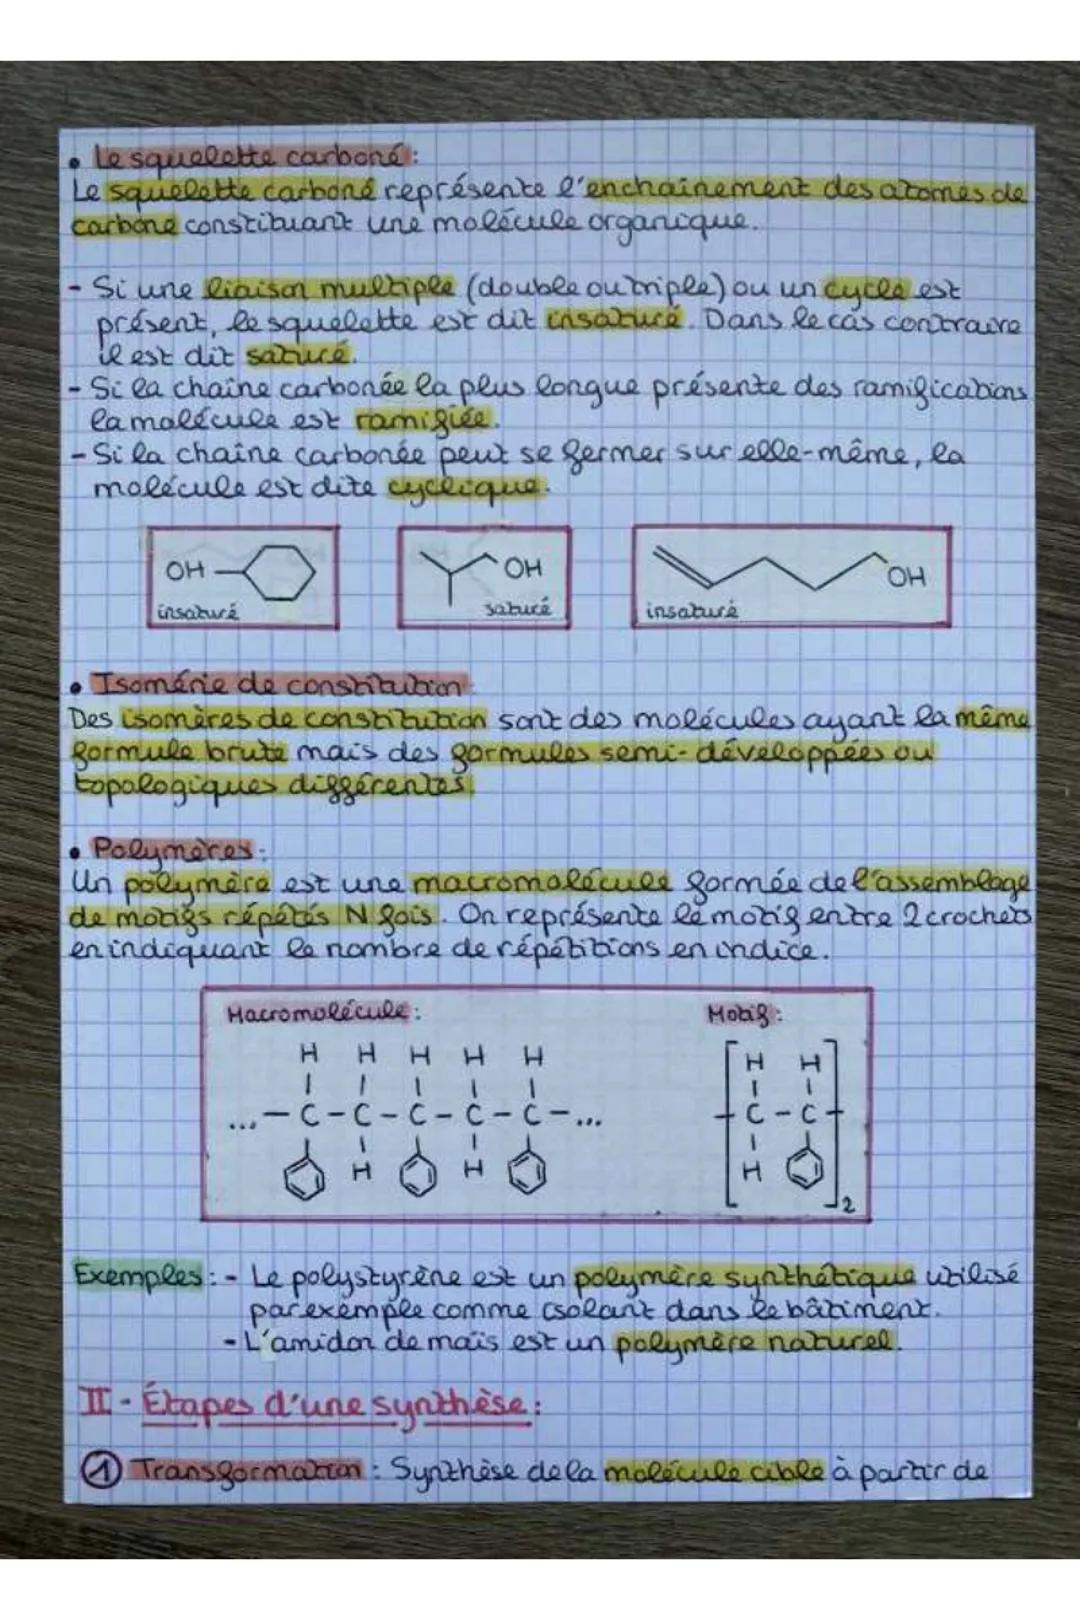 • Le squelette carboné :
Le squelette carboné représente l'enchaînement des atomes de
carbone constituant une molécule organique.
- Si une liaison multiple (double ou triple) ou un cycle est
présent, le squelette est dit insaturé. Dans le cas contraire
il est dit saturé.
- Si la chaîne carbonée la plus longue présente des ramifications
la molécule est ramifiée.
- Si la chaîne carbonée peut se fermer sur elle-même, la
molécule est dite cyclique.
OH
insaturé
OH
saturé
OH
insaturé
• Isomérie de constitution
Des isomères de constitution sont des molécules ayant la même
formule brute mais des formules semi-développées ou
topologiques différentes.
• Polymères :
Un polymère est une macromolécule formée de l'assemblage
de motifs répétés N fois. On représente le motif entre 2 crochets
en indiquant le nombre de répétitions en indice.
Macromolécule :
H H H H H
... - C - C - C - C - C - ...
H H
Motif :
H H
C - C
H
2
Exemples : - Le polystyrène est un polymère synthétique utilisé
par exemple comme isolant dans le bâtiment.
- L'amidon de maïs est un polymère naturel.
II - Étapes d'une synthèse :
1 Transformation : Synthèse de la molécule cible à partir de